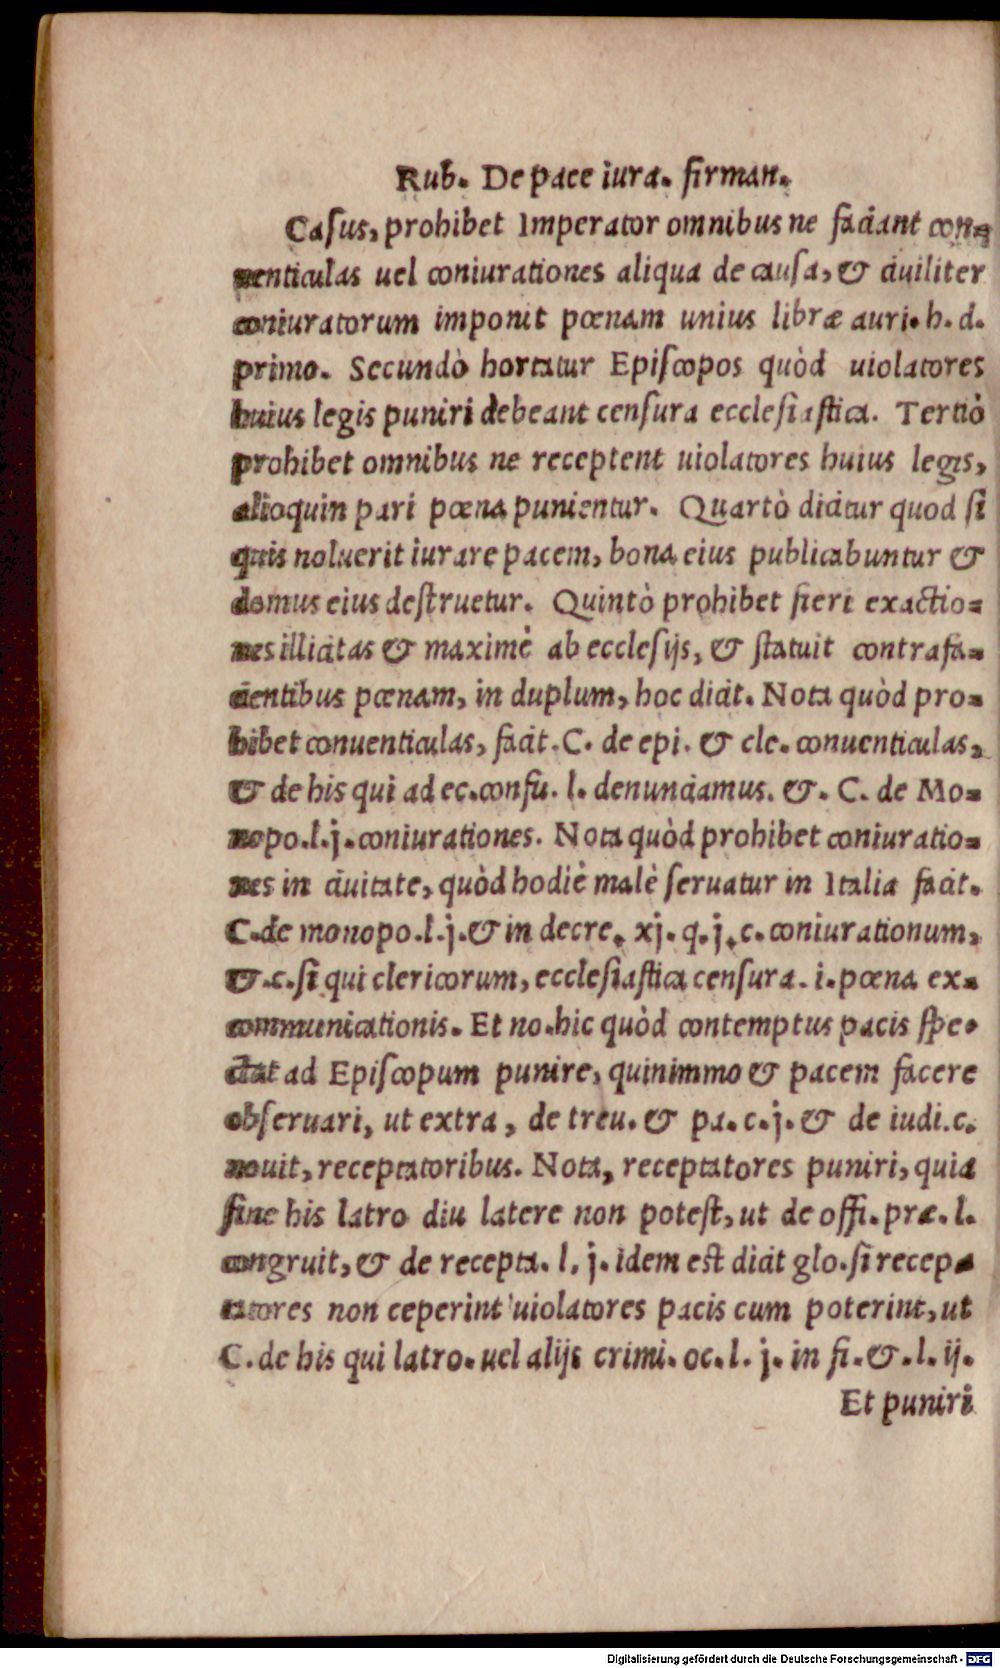 Rub. De pace iura. firman.
Casus, prohibet Imperator omnibus ne faciant con=
uenticulas uel coniurationes aliqua de causa, & ciuiliter
coniuratorum imponit pœnam unius libræ auri. h. d.
primo. Secundò hortatur Episcopos quòd uiolatores
huius legis puniri debeant censura ecclesiastica. Tertiò
prohibet omnibus ne receptent uiolatores huius legis,
alioquin pari pœna punientur. Quartò dicitur quod si
quis noluerit iurare pacem, bona eius publicabuntur &
domus eius destruetur. Quintò prohibet fieri exactio=
nes illicitas & maximè ab ecclesijs, & statuit contrafa=
cientibus pœnam, in duplum, hoc dicit. Nota quòd pro=
hibet conuenticulas, facit. C. de epi. & cle. conuenticulas,
& de his qui ad ec. confu. l. denunciamus. &. C. de Mo=
nopo. l. j. coniurationes. Nota quòd prohibet coniuratio=
nes in ciuitate, quòd hodiè malè seruatur in Italia facit.
C. de monopo. l. j. & in decre. xj. q. j. c. coniurationum,
&. c. si qui clericorum, ecclesiastica censura. i. pœna ex=
communicationis. Et no. hic quòd contemptus pacis spe=
ctat ad Episcopum punire, quinimmo & pacem facere
obseruari, ut extra, de treu. & pa. c. j. & de iudi. c.
nouit, receptatoribus. Nota, receptatores puniri, quia
sine his latro diu latere non potest, ut de offi. præ. l.
congruit, & de recepta. l. j. idem est dicit glo. si recep=
tatores non ceperint uiolatores pacis cum poterint, ut
C. de his qui latro. uel alijs crimi. oc. l. j. in fi. &. l. ij.
Et puniri
Digitalisierung gefördert durch die Deutsche Forschungsgemeinschaft - DFG